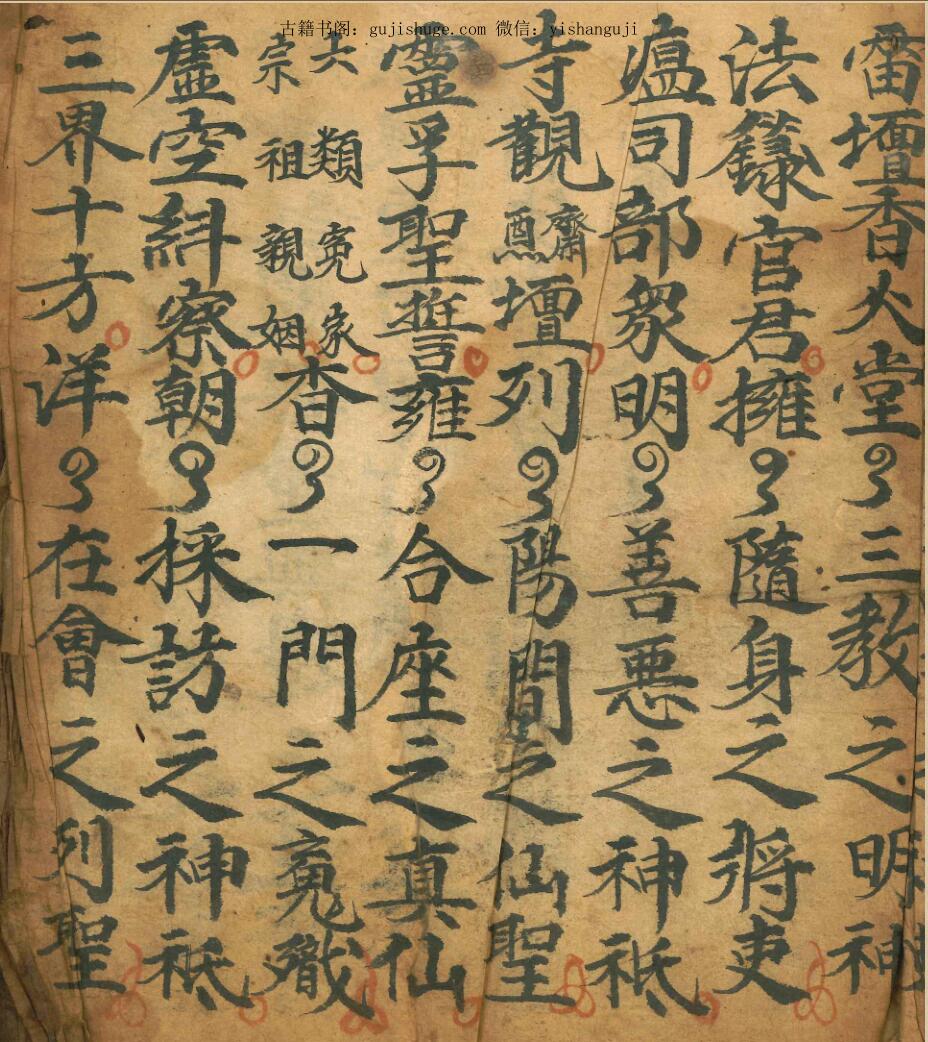 古籍书阁：gujishuge.com 微信：yishanguji
雷壇香火堂々三教之明神
法籙官君擁々隨身之將吏
瘟司部眾明々善惡之神祇
寺觀齋醮壇列々陽間之仙聖
靈孚聖誓雍々合座之真仙
六類冤家
宗祖親姻
杳々一門之
虛空糾察朝々採訪之神祇
三界十方洋々在會之列聖